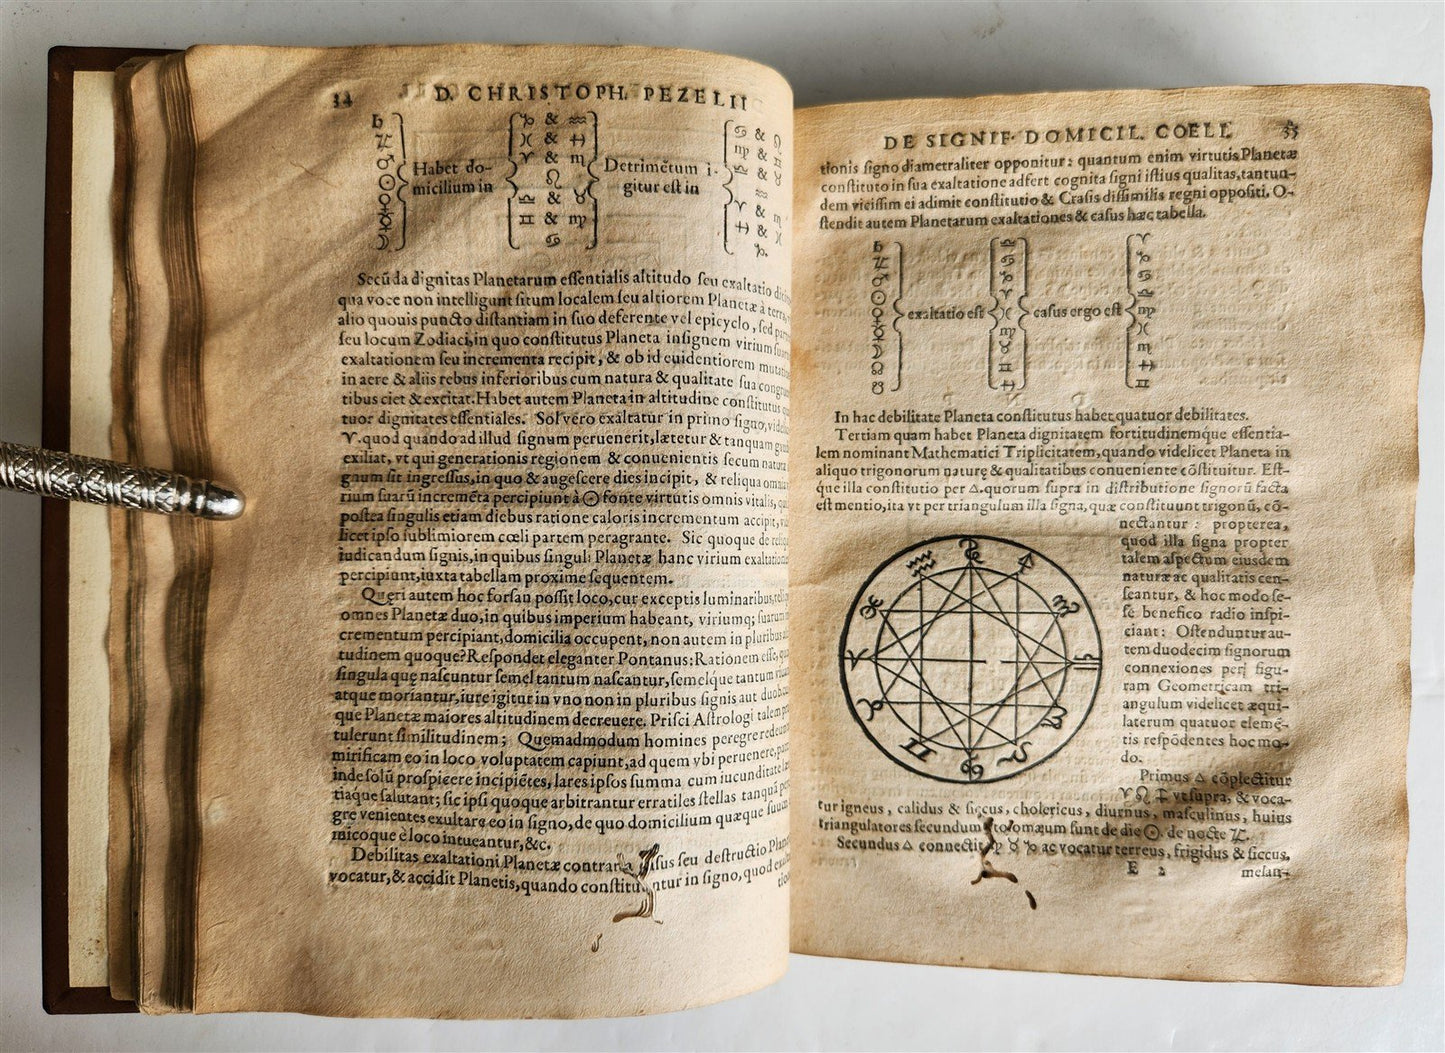 34 D. CHRISTOPH. PEZELII
♄ ♃ ♂ ☉ ♀ ☿ ☽
Habet do-
micilium in
♑ & ♒
♓ & ♐
♈ & ♏
♌
♎ & ♉
♊ & ♍
♋
Detrimētum i-
gitur est in
♋ & ♌
♍ & ♊
♎ & ♉
♒
♈ & ♏
♐ & ♓
♑.
Secūda dignitas Planetarum essentialis altitudo seu exaltatio
qua voce non intelligunt situm localem seu altiorem Planetæ à terra,
alio quouis puncto distantiam in suo deferente vel epicyclo, sed
seu locum Zodiaci, in quo constitutus Planeta insignem virium
exaltationem seu incrementa recipit, & ob id euidentiorem
in aere & aliis rebus inferioribus cum natura & qualitate sua
tibus ciet & excitat. Habet autem Planeta in altitudine constitutus
tuor dignitates essentiales. Sol vero exaltatur in primo signo,
♈. quod quando ad illud signum peruenerit, lætetur & tanquam
exiliat, vt qui generationis regionem & conuenientis secum
gnum sit ingressus, in quo & augescere dies incipit, & reliqua
rium suarū incremēta percipiunt à ☉ fonte virtutis omnis vitalis,
postea singulis etiam diebus ratione caloris incrementum accipit,
licet ipso sublimiorem cœli partem peragrante. Sic quoque de
iudicandum signis, in quibus singuli Planetæ hanc virium
percipiunt, iuxta tabellam proxime sequentem.
Quęri autem hoc forsan possit loco, cur exceptis luminaribus,
omnes Planetæ duo, in quibus imperium habeant, viriumq;
crementum percipiant, domicilia occupent, non autem in pluribus
tudinem quoque? Respondet eleganter Pontanus: Rationem esse,
singula quę nascuntur semel tantum nascantur, semelque tantum
atque moriantur, iure igitur in vno non in pluribus signis aut
que Planetæ maiores altitudinem decreuere. Prisci Astrologi talem
tulerunt similitudinem; Quemadmodum homines peregre
mirificam eo in loco voluptatem capiunt, ad quem vbi peruenere,
inde solū prospicere incipiētes, lares ipsos summa cum iucunditate
tiaque salutant; sic ipsi quoque arbitrantur erratiles stellas tanquā
gre venientes exultare eo in signo, de quo domicilium quæque
micoque è loco intueantur, &c.
Debilitas exaltationi Planetæ contraria seu destructio
vocatur, & accidit Planetis, quando in signo, quod
DE SIGNIF. DOMICIL. COELI. 35
tionis signo diametraliter opponitur: quantum enim virtutis Planetæ
constituto in sua exaltatione adfert cognita signi istius qualitas, tantun-
dem vicissim ei adimit constitutio & Crasis dissimilis regni oppositi. O-
stendit autem Planetarum exaltationes & casus hæc tabella.
♄ ♃ ♂ ☉ ♀ ☿ ☽ ☊ ☋
exaltatio est
♎ ♋ ♑ ♈ ♓ ♍ ♉ ♊ ♐
casus ergo est
♈ ♑ ♋ ♎ ♍ ♓ ♏ ♐ ♊
In hac debilitate Planeta constitutus habet quatuor debilitates.
Tertiam quam habet Planeta dignitatem fortitudinemque essentia-
lem nominant Mathematici Triplicitatem, quando videlicet Planeta in
aliquo trigonorum naturę & qualitatibus conueniente cōstituitur. Est-
que illa constitutio per △. quorum supra in distributione signorū facta
est mentio, ita vt per triangulum illa signa, quæ constituunt trigonū, cō-
nectantur: propterea,
quod illa signa propter
talem aspectum eiusdem
naturæ ac qualitatis cen-
seantur, & hoc modo se-
se benefico radio inspi-
ciant: Ostenduntur au-
tem duodecim signorum
connexiones per figu-
ram Geometricam tri-
angulum videlicet æqui-
laterum quatuor elemē-
tis respōdentes hoc mo-
do.
♋ ♌ ♍ ♎ ♏ ♐ ♑ ♒ ♓ ♈ ♉ ♊
Primus △ cōplectitur
♈ ♌ ♐ vt supra, & voca-
tur igneus, calidus & siccus, cholericus, diurnus, masculinus, huius
triangulatores secundum Ptolomæum sunt de die ☉. de nocte ♃.
Secundus △ connectit ♍ ♉ ♑ ac vocatur terreus, frigidus & siccus,
E 2 melan-